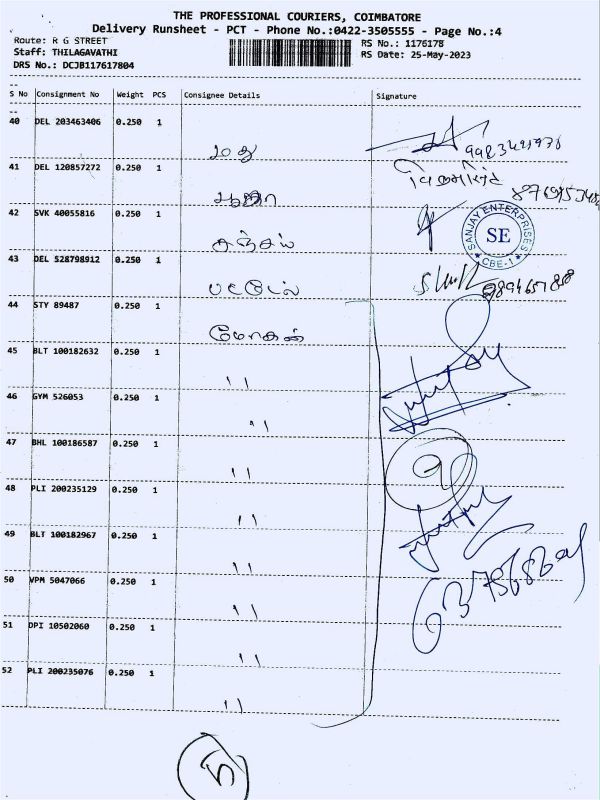 THE PROFESSIONAL COURIERS, COIMBATORE
Delivery Runsheet - PCT - Phone No.:0422-3505555 - Page No.:4
Route: R G STREET RS No.: 1176178
Staff: THILAGAVATHI RS Date: 25-May-2023
DRS No.: DCJB117617804
S No Consignment No Weight PCS Consignee Details Signature
40 DEL 203463406 0.250 1
மது
41 DEL 120857272 0.250 1
42 SVK 40055816 0.250 1
சஞ்சய்
SANJAY ENTERPRISES
SE
★ CBE-1 ★
43 DEL 528798912 0.250 1
பட்டேல்
44 STY 89487 0.250 1
மோகன்
45 BLT 100182632 0.250 1
"
46 GYM 526053 0.250 1
"
47 BHL 100186587 0.250 1
"
9
48 PLI 200235129 0.250 1
"
49 BLT 100182967 0.250 1
"
50 VPM 5047066 0.250 1
"
51 DPI 10502060 0.250 1
"
52 PLI 200235076 0.250 1
"